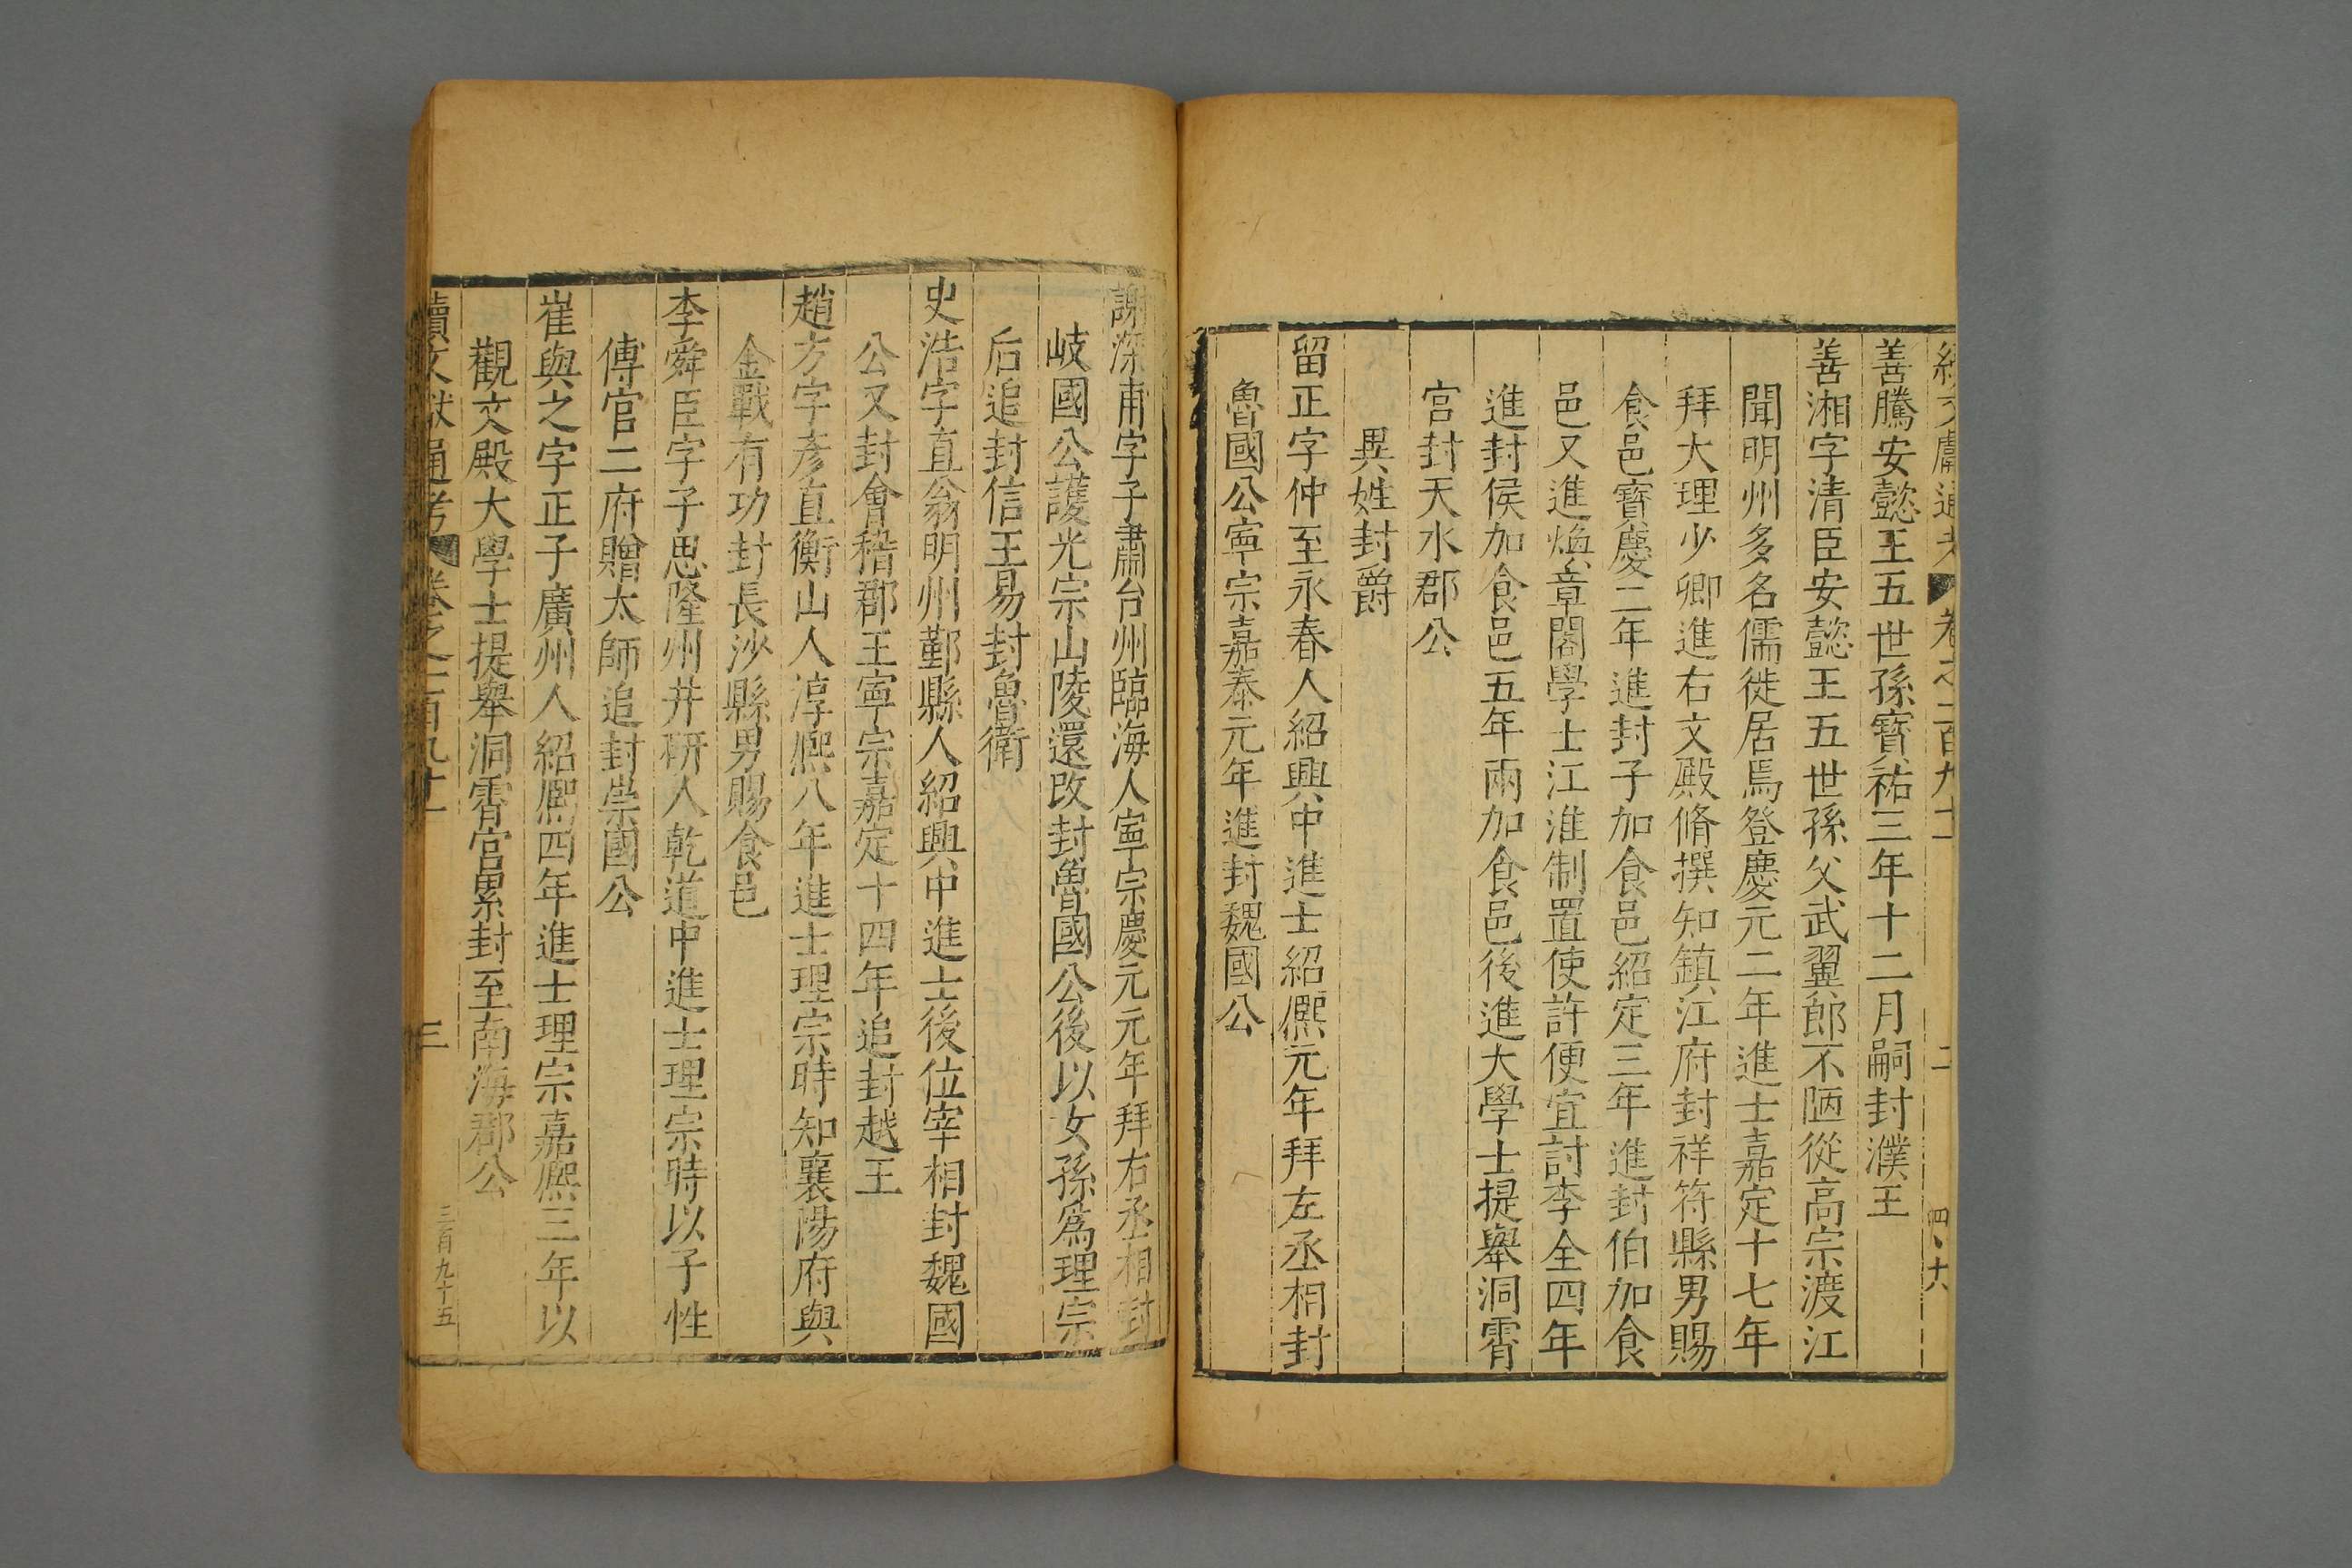 續文獻通考 卷之二百九十二 二
善騰安懿王五世孫寶祐三年十二月嗣封濮王
善湘字清臣安懿王五世孫父武翼郎不陋從高宗渡江
聞明州多名儒徙居焉登慶元二年進士嘉定十七年
拜大理少卿進右文殿脩撰知鎮江府封祥符縣男賜
食邑寶慶二年進封子加食邑紹定三年進封伯加食
邑又進煥章閣學士江淮制置使許便宜討李全四年
進封侯加食邑五年兩加食邑後進大學士提舉洞霄
宮封天水郡公
異姓封爵
留正字仲至永春人紹興中進士紹熙元年拜左丞相封
魯國公寧宗嘉泰元年進封魏國公
謝深甫字子肅台州臨海人寧宗慶元元年拜右丞相封
岐國公護光宗山陵還改封魯國公後以女孫為理宗
后追封信王易封魯衛
史浩字直翁明州鄞縣人紹興中進士後位宰相封魏國
公又封會稽郡王寧宗嘉定十四年追封越王
趙方字彥直衡山人淳熙八年進士理宗時知襄陽府與
金戰有功封長沙縣男賜食邑
李舜臣字子思隆州井研人乾道中進士理宗時以子性
傳官二府贈太師追封崇國公
崔與之字正子廣州人紹熙四年進士理宗嘉熙三年以
觀文殿大學士提舉洞霄宮累封至南海郡公
續文獻通考 卷之二百九十二 三 三百九十五